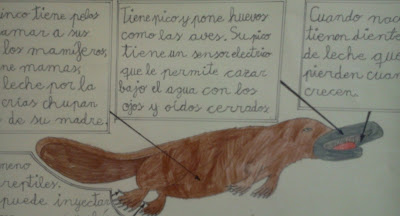 inco tiene pelos
amar a sus
los mamíferos,
ne mamas;
leche por la
crías chupan
de su madre.
Tiene pico y pone huevos
como las aves. Su pico
tiene un sensor electrico
que le permite cazar
bajo el agua con los
ojos y oídos cerrados.
Cuando nac
tienen diente
de leche que
pierden cuan
crecen.
meno
reptiles.
puede inyectar